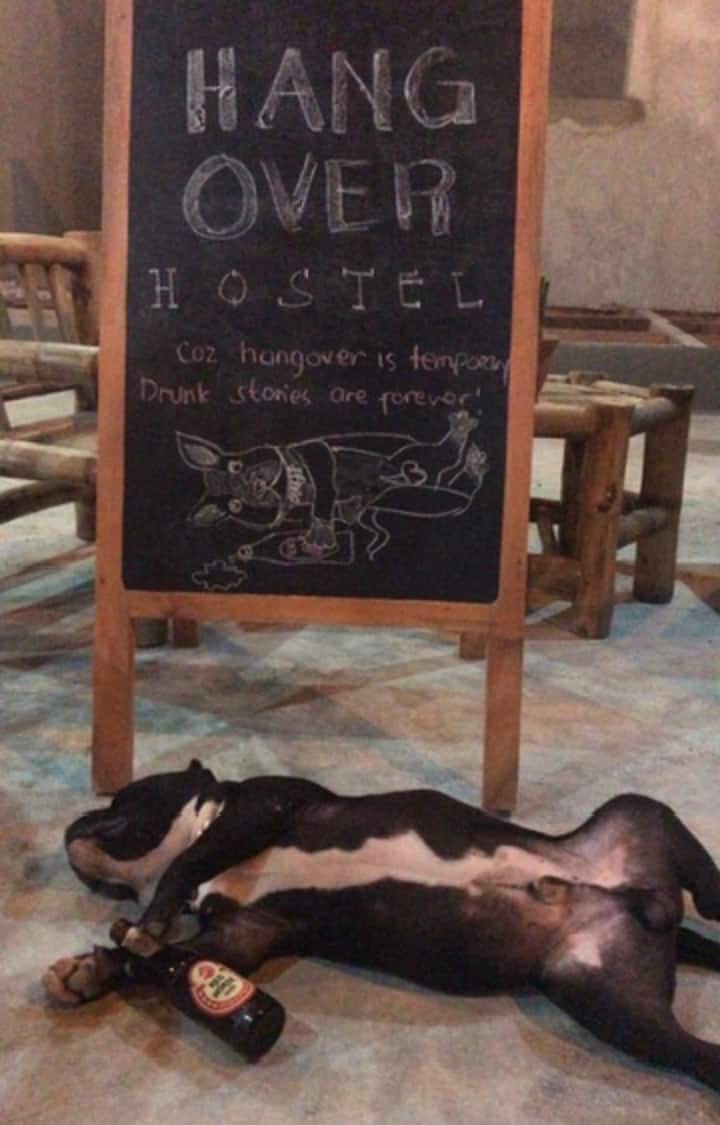 HANG
OVER
HOSTEL
Coz hangover is temporary
Drunk stories are forever!